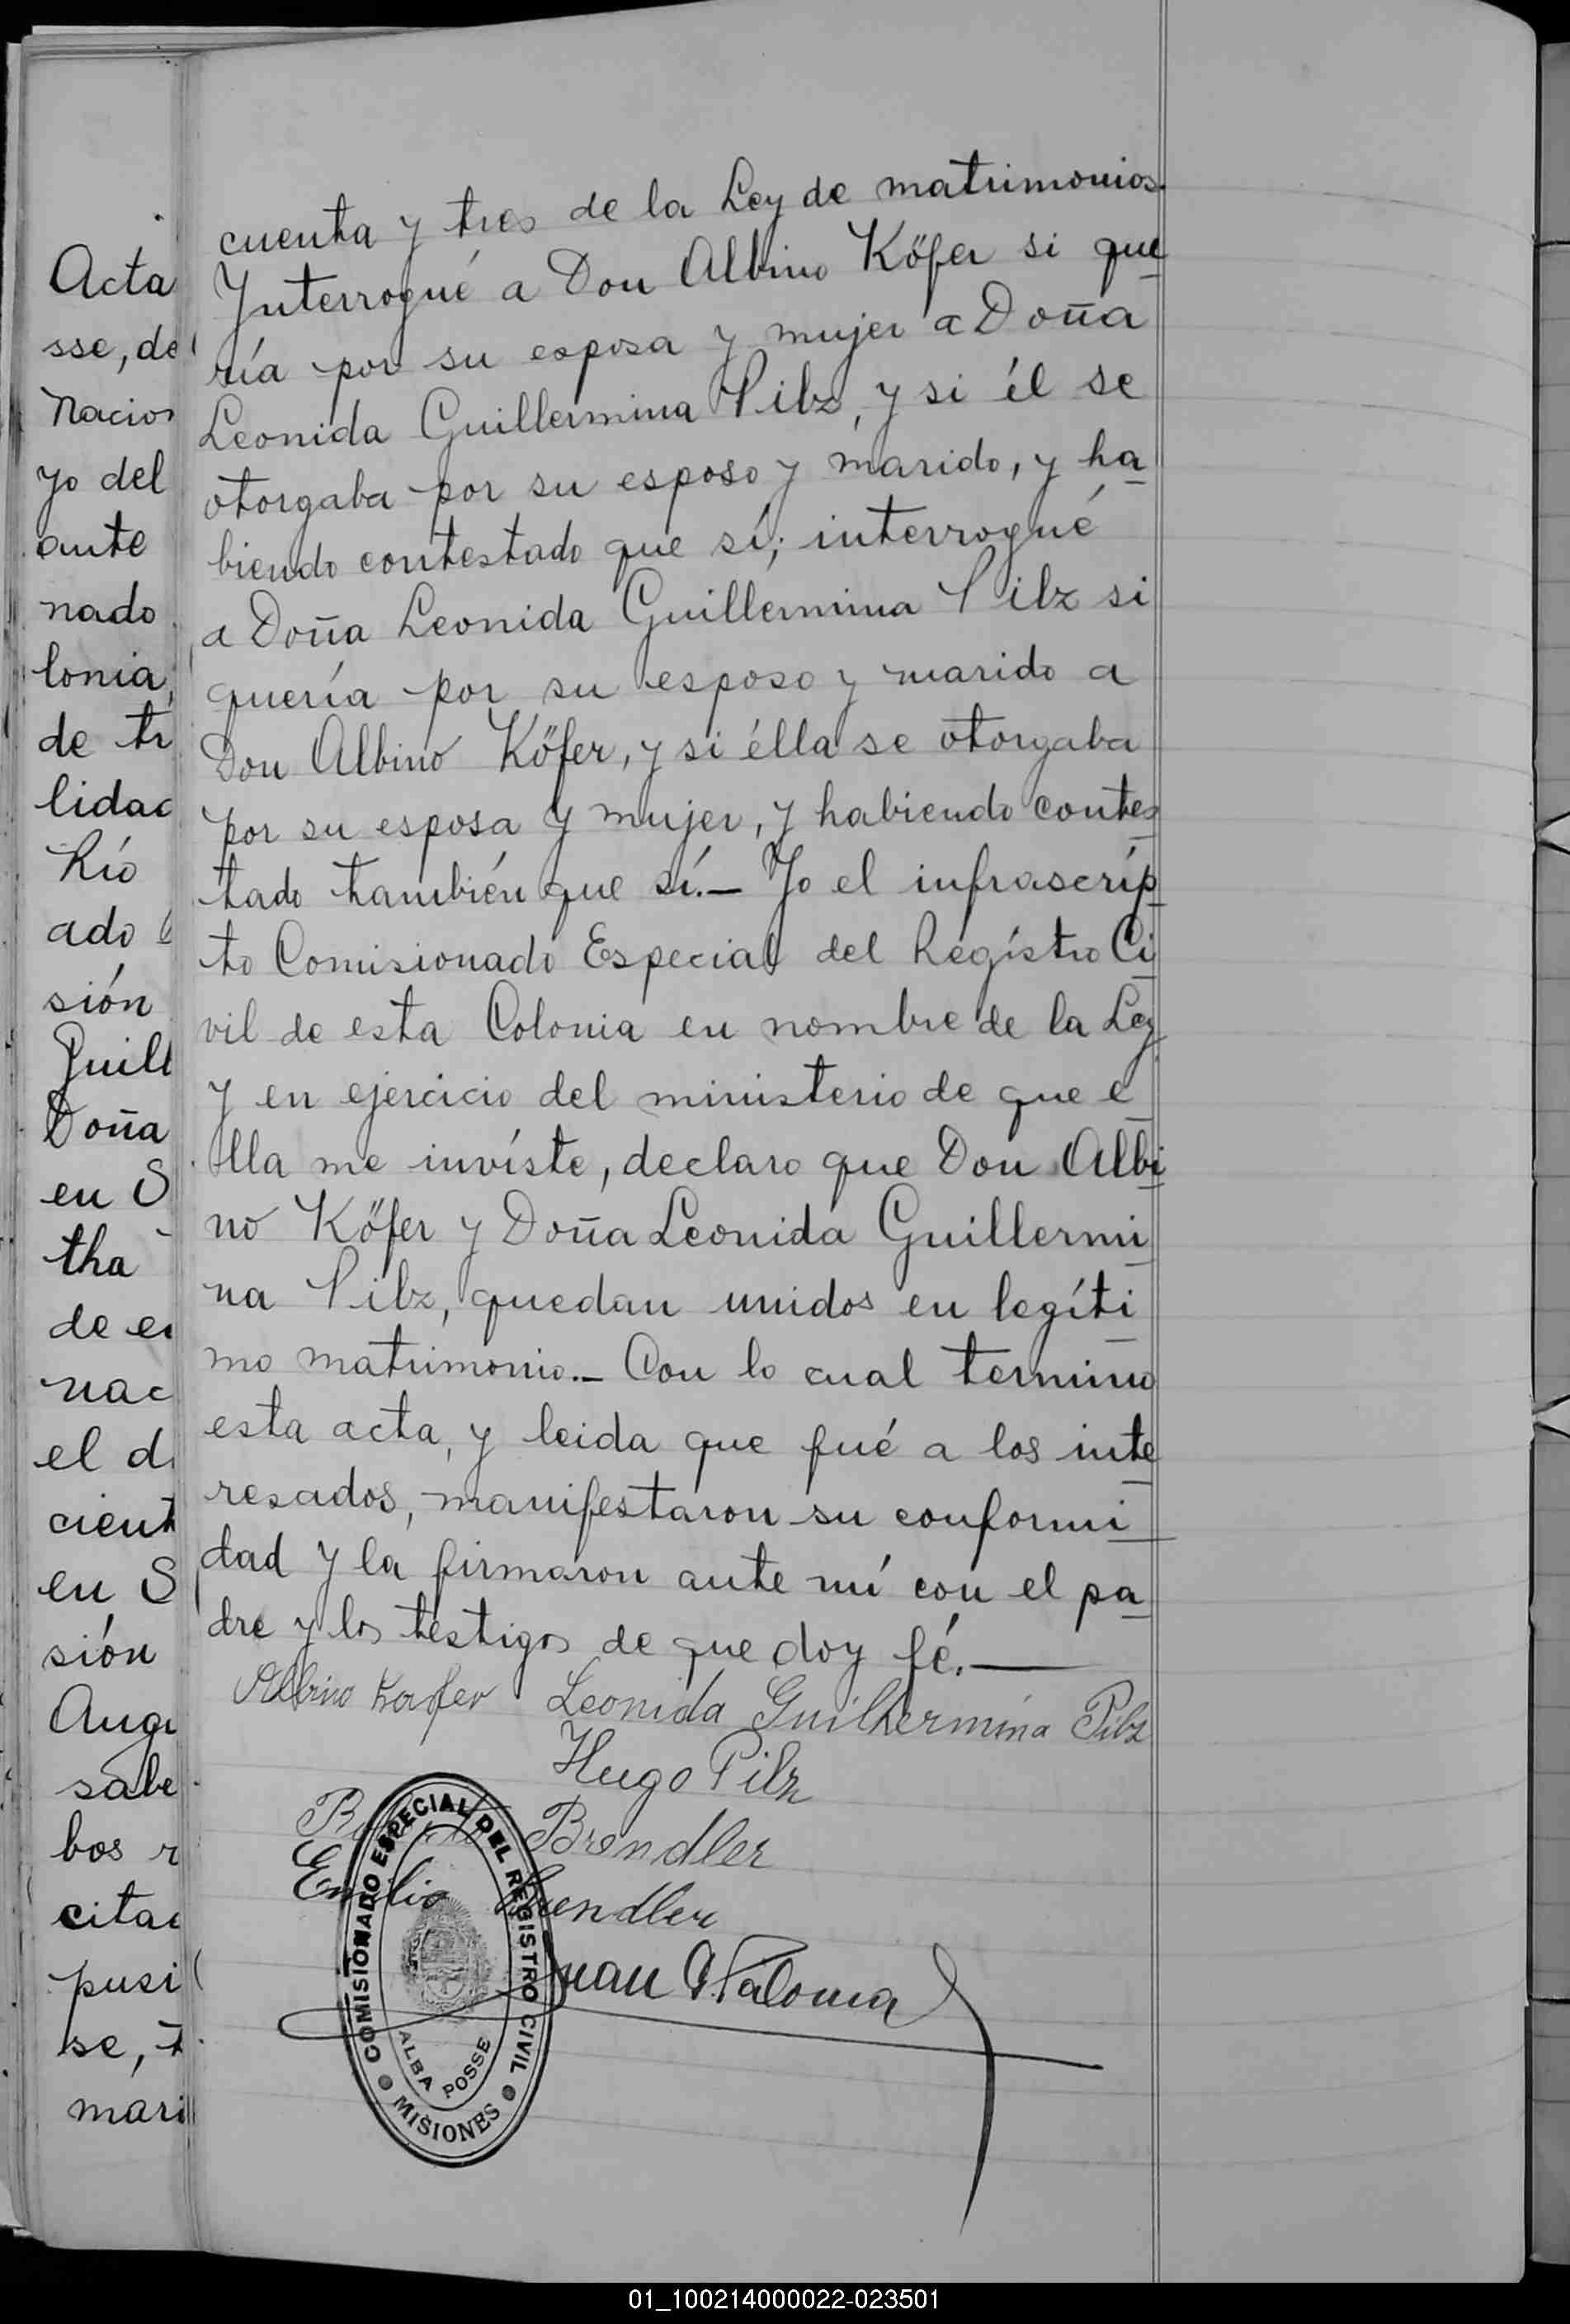 cuenta y tres de la Ley de matrimonios.
Ynterrogué a Don Albino Köfer si que
ría por su esposa y mujer a Doña
Leonida Guillermina Pilz, y si él se
otorgaba por su esposo y marido, y ha
biendo contestado que sí; interrogué
a Doña Leonida Guillermina Pilz si
quería por su esposo y marido a
Don Albino Köfer, y si élla se otorgaba
por su esposa y mujer, y habiendo contes
tado también que sí.— Yo el infrascríp
to Comisionado Especial del Regístro Ci
vil de esta Colonia en nombre de la Ley
y en ejercicio del ministerio de que e
lla me invíste, declaro que Don Albi
no Köfer y Doña Leonida Guillermi
na Pilz, quedan unidos en legíti
mo matrimonio.— Con lo cual termino
esta acta, y leida que fué a los inte
resados, manifestaron su conformi
dad y la firmaron ante mí con el pa
dre y los testigos de que doy fé.—
Albino Köfer Leonida Guilhermina Pilz
Hugo Pilz
Brendler
Emilio Brendler
Juan G. Paloma
COMISIONADO ESPECIAL DEL REGISTRO CIVIL
ALBA POSSE
MISIONES
Acta
sse, de
Nacio
yo del
ante
nado
lonia,
de tr
lidad
Río
ado
sión
Guill
Doña
en S
tha
de e
nac
el d
cient
en S
sión
Augu
sabe
bos r
citad
pusi
se, t
mari
01_100214000022-023501